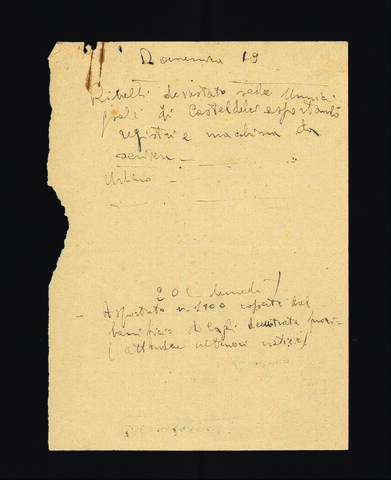 Domenica 19
Ribelli devastato sede Munici
pali di Casteldelci asportando
registri e macchina da
scrivere
Urbino
20 (lunedì)
Asportato n. 1100 coperte dal
lanificio di Cagli
(attendere ulteriori notizie)